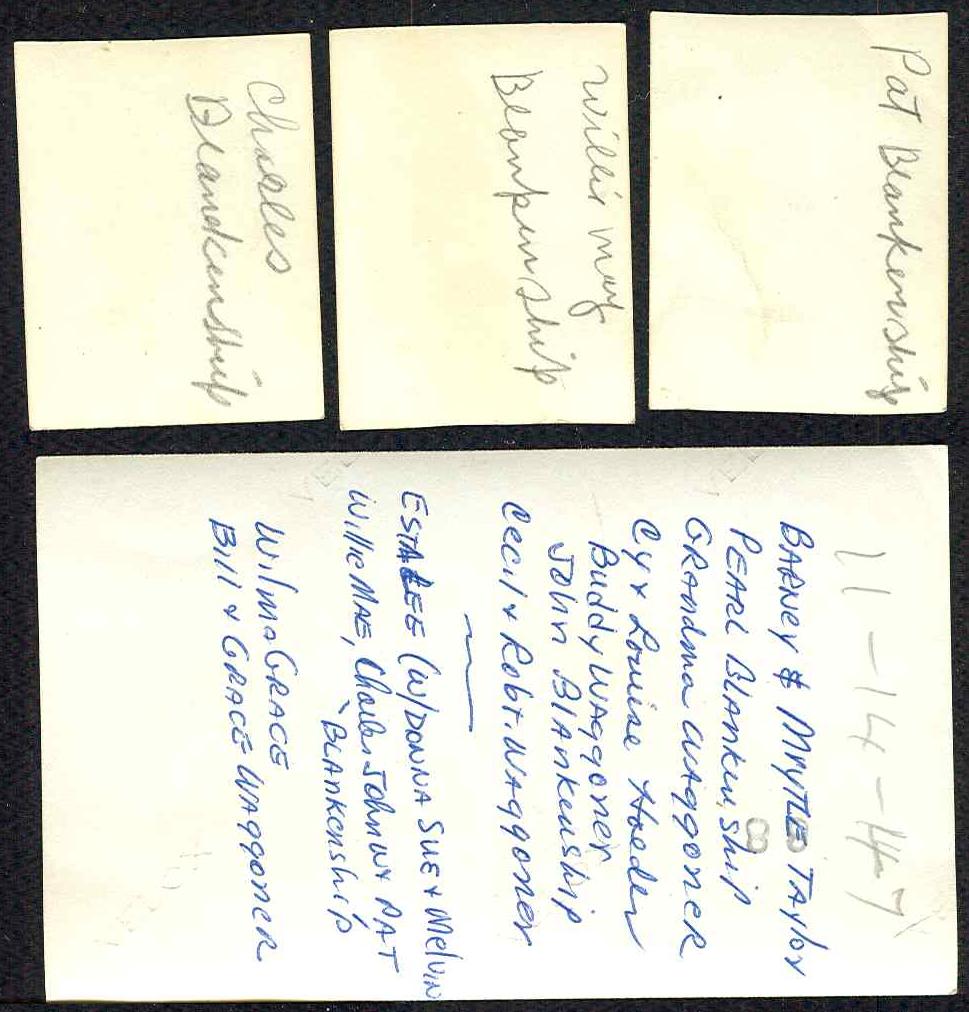 Charles
Blandkenship
Willie may
Blankenship
Pat Blankenship
11-14-47
BARNEY & MRYTLE TAYlor
PEARL BlAnkenship
GRAndma WAggonER
Cy & Louise
Buddy WAggoner
John BlAnkenship
Cecil & Robt. WAggoner
ESTALEE (w/DONNA SUE & Melvin
Willie MAE, Charles Johnny & PAT
BlAnkenship
WilmA GRACE
Bill & GRACE WAggonER